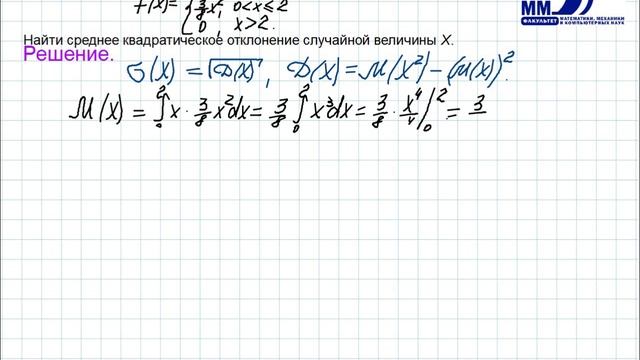 f(x)= { 3/8 x², 0<x≤2
0, x>2.
ММ
ФАКУЛЬТЕТ МАТЕМАТИКИ, МЕХАНИКИ И КОМПЬЮТЕРНЫХ НАУК
Найти среднее квадратическое отклонение случайной величины X.
Решение.
σ(X) = √D(X), D(X) = M(X²) − (M(X))².
M(X) = ∫₀² x · 3/8 x² dx = 3/8 ∫₀² x³ dx = 3/8 · x⁴/4 |₀² = 3